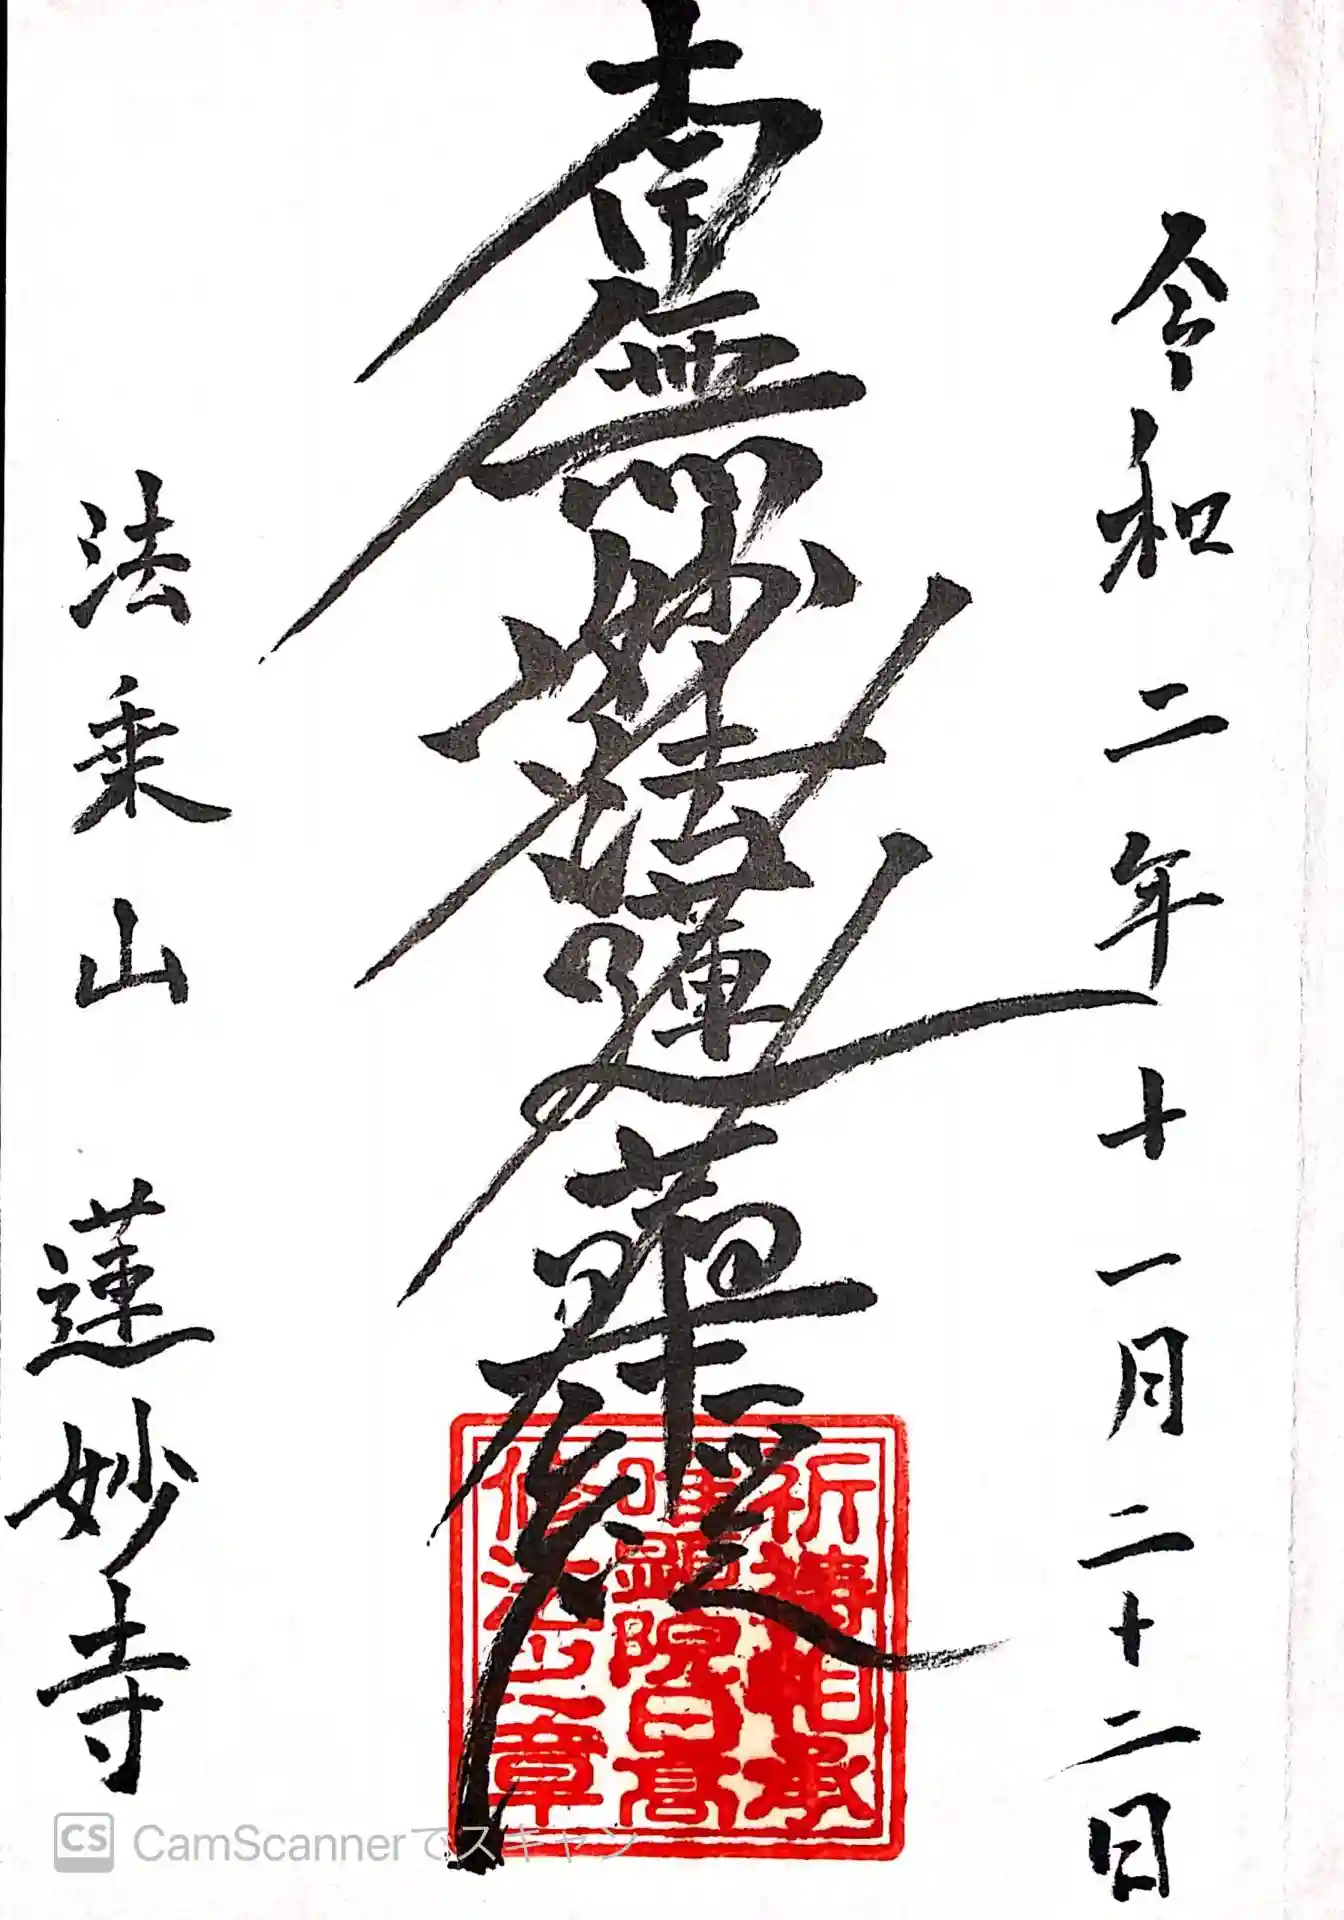 令和二年十一月二十二日
南無妙法蓮華経
法乗山 蓮妙寺
祈祷相承
唯顕院日髙
修法之章
CS CamScannerでスキャン